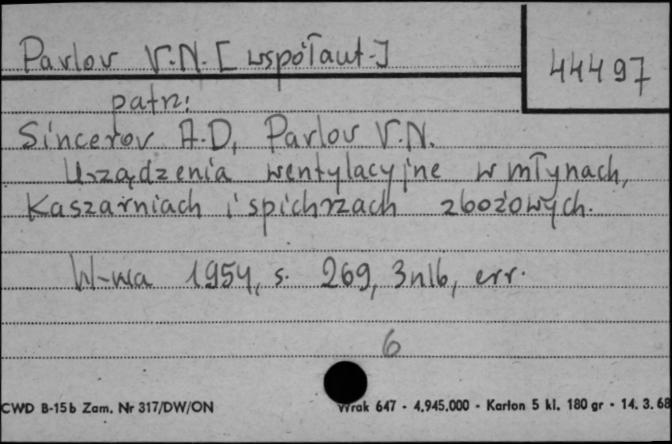 Pavlov V.N. [współaut.]
44497
patrz:
Sincerov A.D, Pavlov V.N.
Urządzenia wentylacyjne w młynach,
Kaszarniach i spichrzach zbożowych.
W-wa 1954, s. 269, 3nlb, err.
6
CWD B-15b Zam. Nr 317/DW/ON
Wrak 647 - 4.945.000 - Karton 5 kl. 180 gr - 14. 3. 68